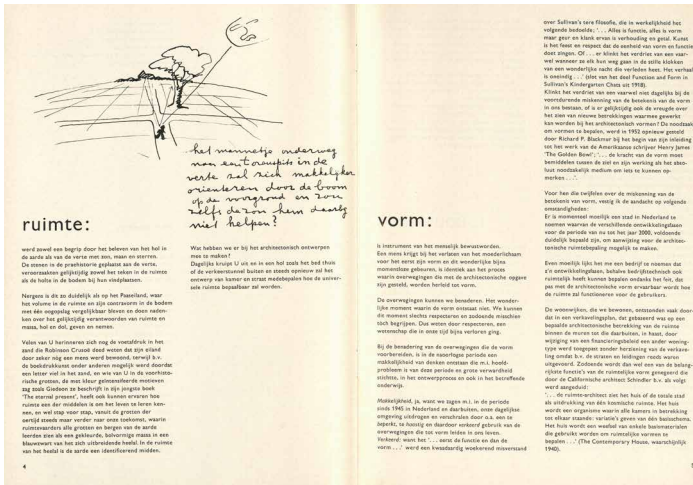 het mannetje onderweg
naar een torenspits in de
verte zal zich makkelijker
orienteren door de boom
op de voorgrond en zou
zelfs de zon hem daarbij
niet helpen?
ruimte:
werd zowel een begrip door het beleven van het hol in
de aarde als van de verte met zon, maan en sterren.
De stenen in de praehistorie geplaatst aan de verte,
veroorzaakten gelijktijdig zowel het teken in de ruimte
als de holte in de bodem bij hun vindplaatsen.
Nergens is dit zo duidelijk als op het Paaseiland, waar
het volume in de ruimte en zijn contravorm in de bodem
met één oogopslag vergelijkbaar bleven en doen naden-
ken over het gelijktijdig verantwoorden van ruimte en
massa, hol en dol, geven en nemen.
Velen van U herinneren zich nog de voetafdruk in het
zand die Robinson Crusoë deed weten dat zijn eiland
door zeker nog een mens werd bewoond, terwijl b.v.
de boekdrukkunst onder anderen mogelijk werd doordat
een letter viel in het zand, en wie van U in de voorhisto-
rische grotten, de met kleur geïmiteerde motieven
zag zoals Giedion ze beschrijft in zijn jongste boek
'The eternal present', heeft ook kunnen ervaren hoe
ruimte een der middelen is om het leven te leren ken-
nen, en wel stap voor stap, vanuit de grotten der
oertijd steeds maar verder naar onze toekomst, waarin
ruimtevaarders alle grotten en bergen van de aarde
leerden zien als een gekleurde, bolvormige massa in een
blauwzwart van het zich uitbreidende heelal. In de ruimte
van het heelal is de aarde een identificerend midden.
4
Wat hebben we er bij het architectonisch ontwerpen
mee te maken?
Dagelijks kruipt U en in een hol zoals het bed thuis
of de verkeerstunnel buiten en steeds opnieuw zal het
ontwerp van kamer en straat medebepalen hoe de univer-
sele ruimte bepaalbaar zal worden.
vorm:
is instrument van het menselijk bewustworden.
Een mens krijgt bij het verlaten van het moederlichaam
voor het eerst zijn vorm en dit wonderlijke bijna
momentloze gebeuren, is identiek aan het proces
waarin overwegingen die met de architectonische opgave
zijn gesteld, worden herleid tot vorm.
De overwegingen kunnen we benaderen. Het wonder-
lijke moment waarin de vorm ontstaat niet. We kunnen
dit moment slechts respecteren en zodoende misschien
tóch begrijpen. Dus weten door respecteren, een
wetenschap die in onze tijd bijna verloren ging.
Bij de benadering van de overwegingen die de vorm
voorbereiden, is in de naoorlogse periode een
makkelijkheid van denken ontstaan die m.i. hoofd-
probleem is van deze periode en grote verwardheid
stichtte, in het ontwerpproces en ook in het betreffende
onderwijs.
Makkelijkheid, ja, want we zagen m.i. in de periode
sinds 1945 in Nederland en daarbuiten, onze dagelijkse
omgeving uitdrogen en verschralen door o.a. een te
beperkt, te haastig en daardoor verkeerd gebruik van de
overwegingen die tot vorm leiden in ons leven.
Verkeerd: want het '. . . eerst de functie en dan de
vorm . . .' werd een kwaadaardig woekerend misverstand
over Sullivan's tere filosofie, die in werkelijkheid het
volgende bedoelde; '. . . Alles is functie, alles is vorm
maar geur en klank ervan is verhouding en getal. Kunst
is het feest en respect dat de eenheid van vorm en functie
doet zingen. Of . . . er klinkt het verdriet van een vaar-
wel wanneer ze elk hun weg gaan in de stille klokken
van een wonderlijke nacht die verleden heet. Het verhaal
is oneindig . . .' (slot van het deel Function and Form in
Sullivan's Kindergarten Chats uit 1918).
Klinkt het verdriet van een vaarwel niet dagelijks bij de
voortdurende miskenning van de betekenis van de vorm
in ons bestaan, of is er gelijktijdig ook de vreugde over
het zien van nieuwe betrekkingen waarmee gewerkt
kan worden bij het architectonisch vormen? De noodzaak
om vormen te bepalen, werd in 1952 opnieuw gesteld
door Richard P. Blackmur bij het begin van zijn inleiding
tot het werk van de Amerikaanse schrijver Henry James
'The Golden Bowl'; '. . . de kracht van de vorm moet
bemiddelen tussen de ziel en zijn werking als het abso-
luut noodzakelijk medium om iets te kunnen op-
merken . . .'.
Voor hen die twijfelen over de miskenning van de
betekenis van vorm, vestig ik de aandacht op volgende
omstandigheden:
Er is momenteel moeilijk een stad in Nederland te
noemen waarvan de verschillende ontwikkelingsfasen
voor de periode van nu tot het jaar 2000, voldoende
duidelijk bepaald zijn, om aanwijzing voor de architec-
tonische ruimtebepaling mogelijk te maken.
Even moeilijk lijkt het me een bedrijf te noemen dat
z'n ontwikkelingsfasen, behalve bedrijfstechnisch ook
ruimtelijk heeft kunnen bepalen ondanks het feit, dat
pas met de architectonische vorm ervaarbaar wordt hoe
de ruimte zal functioneren voor de gebruikers.
De woonwijken, die we bewonen, ontstonden vaak door-
dat in een verkavelingsplan, dat gebaseerd was op een
bepaalde architectonische betrekking van de ruimte
binnen de muren tot die daarbuiten, in haast, door
wijziging van een financieringsbeleid een ander woning-
type werd toegepast zonder herziening van de verkave-
ling omdat b.v. de straten en leidingen reeds waren
uitgevoerd. Zodoende wordt dan wel een van de belang-
rijkste functie's van de ruimtelijke vorm genegeerd die
door de Californische architect Schindler b.v. als volgt
werd aangeduid:
'. . . de ruimte-architect ziet het huis of de totale stad
als uitdrukking van één kosmische ruimte. Het huis
wordt een organisme waarin alle kamers in betrekking
tot elkaar staande: variatie's geven van één basisthema.
Het huis wordt een weefsel van enkele basismaterialen
die gebruikt worden om ruimtelijke vormen te
bepalen . . .' (The Contemporary House, waarschijnlijk
1940).
5